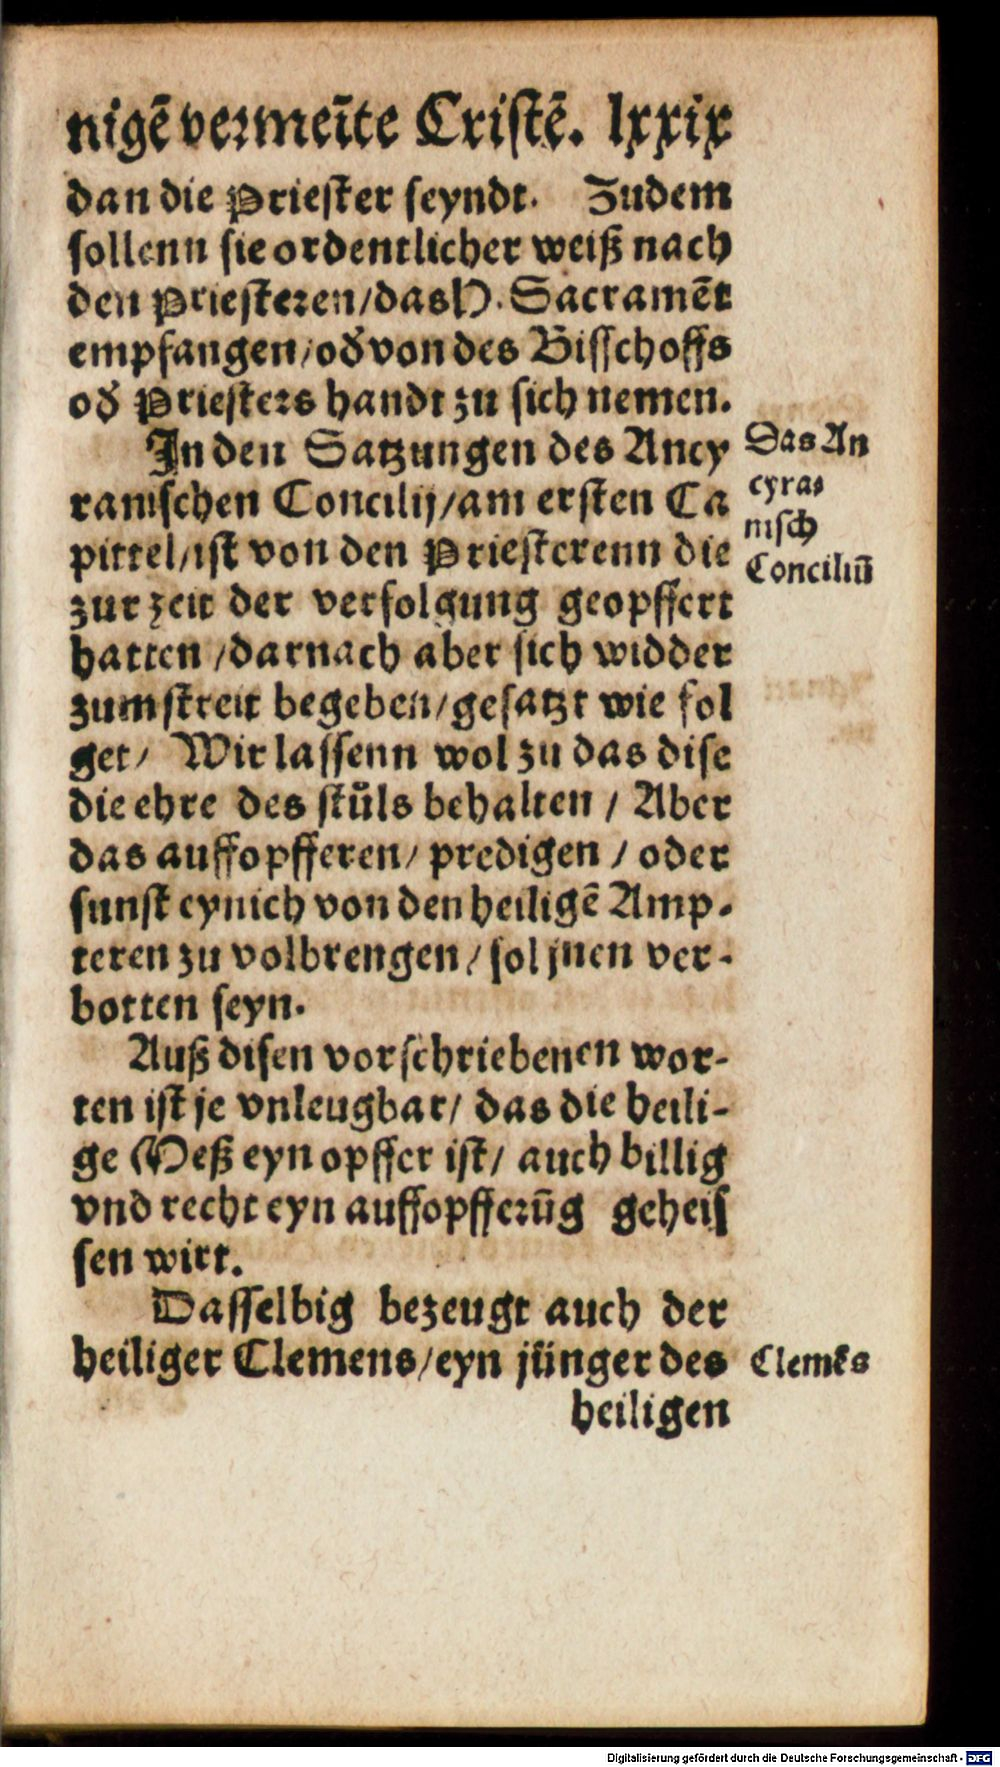 nigē vermeīte Cristē. lxxix
dan die Priester seyndt. Zudem
sollenn sie ordentlicher weiß nach
den Priesteren/das H. Sacramēt
empfangen/od̄ von des Bisschoffs
od̄ Priesters handt zu sich nemen.
In den Satzungen des Ancy
ranischen Concilij/am ersten Ca
pittel/ist von den Priesterenn die
zur zeit der verfolgung geopffert
hatten/darnach aber sich widder
zum streit begeben/gesatzt wie fol
get/ Wir lassenn wol zu das dise
die ehre des stůls behalten / Aber
das auffopfferen/ predigen / oder
sunst eynich von den heiligē Amp-
teren zu volbrengen / sol jnen ver-
botten seyn.
Das An
cyra-
nisch
Conciliū
Auß disen vorschriebenen wor-
ten ist je vnleugbar/ das die heili-
ge Meß eyn opffer ist/ auch billig
vnd recht eyn auffopfferūg geheis
sen wirt.
Dasselbig bezeugt auch der
heiliger Clemens/eyn jünger des
Clemēs
heiligen
Digitalisierung gefördert durch die Deutsche Forschungsgemeinschaft - DFG